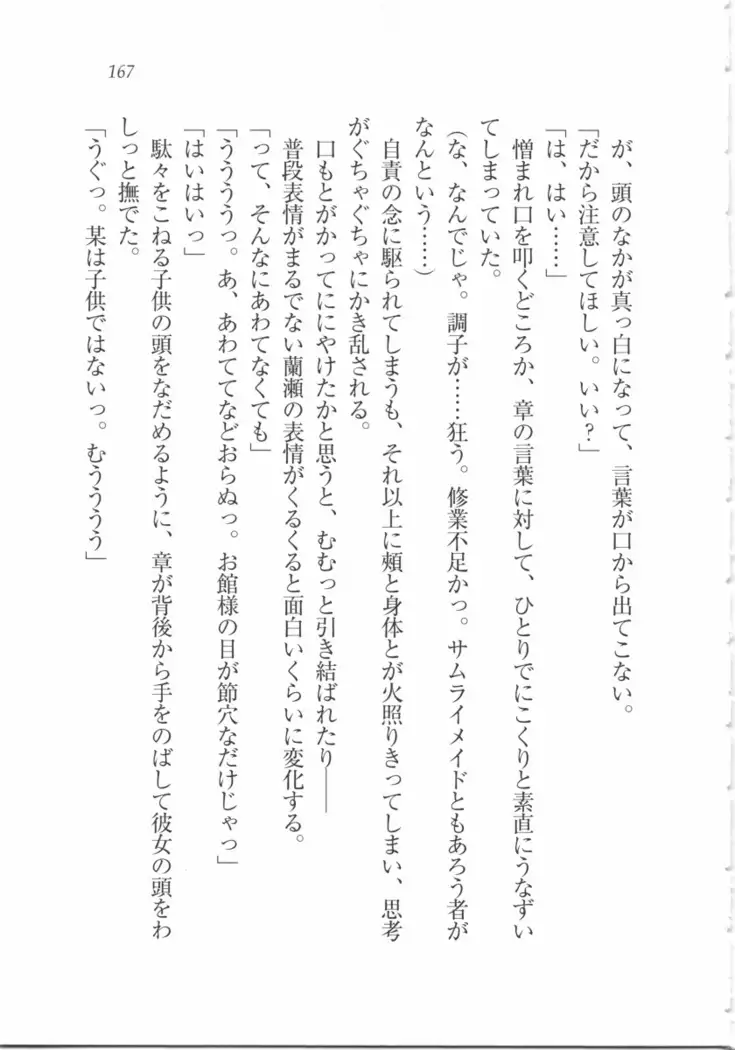 167
が、頭のなかが真っ白になって、言葉が口から出てこない。
「だから注意してほしい。いい?」
「は、はい……」
憎まれ口を叩くどころか、章の言葉に対して、ひとりでにこくりと素直にうなずい
てしまっていた。
(な、なんでじゃ。調子が……狂う。修業不足かっ。サムライメイドともあろう者が
なんという……)
自責の念に駆られてしまうも、それ以上に頰と身体とが火照りきってしまい、思考
がぐちゃぐちゃにかき乱される。
口もとがかってににやけたかと思うと、むむっと引き結ばれたり――
普段表情がまるでない蘭瀬の表情がくるくると面白いくらいに変化する。
「って、そんなにあわてなくても」
「うううっ。あ、あわててなどおらぬっ。お館様の目が節穴なだけじゃっ」
「はいはいっ」
駄々をこねる子供の頭をなだめるように、章が背後から手をのばして彼女の頭をわ
しっと撫でた。
「うぐっ。某は子供ではないっ。むうううう」